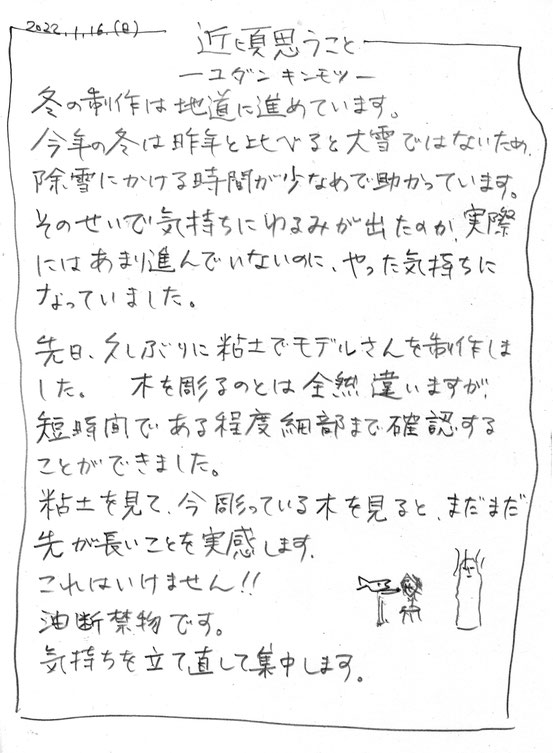 2022.1.16.(日)
近頃思うこと
ーユダンキンモツー
冬の制作は地道に進めています。
今年の冬は昨年と比べると大雪ではないため、
除雪にかける時間が少なめで助かっています。
そのせいで気持ちにゆるみが出たのか、実際
にはあまり進んでいないのに、やった気持ちに
なっていました。
先日、久しぶりに粘土でモデルさんを制作しま
した。 木を彫るのとは全然違いますが、
短時間である程度細部まで確認する
ことができました。
粘土を見て、今彫っている木を見ると、まだまだ
先が長いことを実感します。
これはいけません!!
油断禁物です。
気持ちを立て直して集中します。